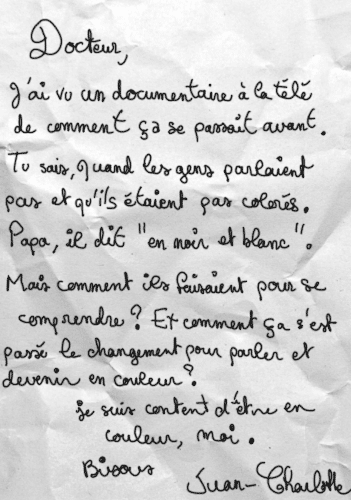 Docteur,
J'ai vu un documentaire à la télé
de comment ça se passait avant.
Tu sais, quand les gens parlaient
pas et qu'ils étaient pas colorés.
Papa, il dit "en noir et blanc".
Mais comment ils faisaient pour se
comprendre ? Et comment ça s'est
passé le changement pour parler et
devenir en couleur ?
je suis content d'être en
couleur, moi.
Bisous
Juan-Charlotte